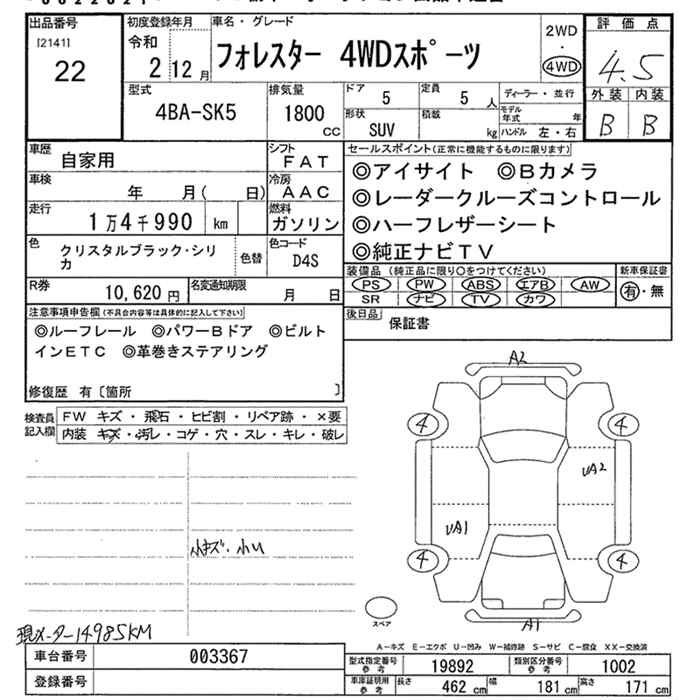 出品番号
[2141]
22
初度登録年月
令和
2 12月
車名・グレード
フォレスター 4WDスポーツ
2WD
・
4WD
評価点
4.5
外装 内装
B B
型式
4BA-SK5
排気量
1800
CC
ドア
5
定員
5 人
形状
SUV
積載
kg
ディーラー・並行
モデル年式 年
ハンドル 左・右
車歴
自家用
シフト
FAT
車検
年 月( 日)
冷房
AAC
走行
1万4千990 km
燃料
ガソリン
色
クリスタルブラック・シリカ
色替
色コード
D4S
R券
10,620 円
名変通知期限
月 日
セールスポイント(正常に機能するものに限ります)
◎アイサイト ◎Bカメラ
◎レーダークルーズコントロール
◎ハーフレザーシート
◎純正ナビTV
装備品(純正品に限り○をつけてください)
PS PW ABS エアB AW
SR ナビ TV カワ
新車保証書
有・無
後日品
保証書
注意事項申告欄(不具合内容等は具体的に記入して下さい)
◎ルーフレール ◎パワーBドア ◎ビルト
インETC ◎革巻きステアリング
修復歴 有〔箇所 〕
検査員記入欄
FW キズ・飛石・ヒビ割・リペア跡・×要
内装 キズ・汚レ・コゲ・穴・スレ・キレ・破レ
小キズ・小U
現メーター14985KM
A2
4 4
UA2
UA1
4 4
A1
スペア
A-キズ E-エクボ U-凹み W-補修跡 S-サビ C-腐食 XX-交換済
車台番号
003367
登録番号
型式指定番号参考
19892
類別区分番号参考
1002
車庫証明用参考
長さ 462 cm 幅 181 cm 高さ 171 cm